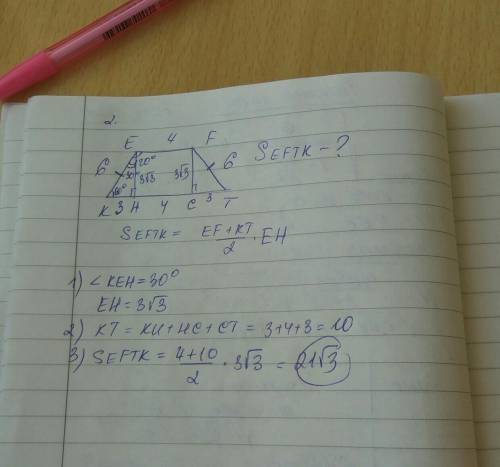 2.
E 4 F
6 30° 3√3 3√3 6
60°
K 3 H 4 C 3 T
SEFTK - ?
SEFTK = EF + KT / 2 · EH
1) ∠KEH = 30°
EH = 3√3
2) KT = KH + HC + CT = 3 + 4 + 3 = 10
3) SEFTK = 4 + 10 / 2 · 3√3 = 21√3